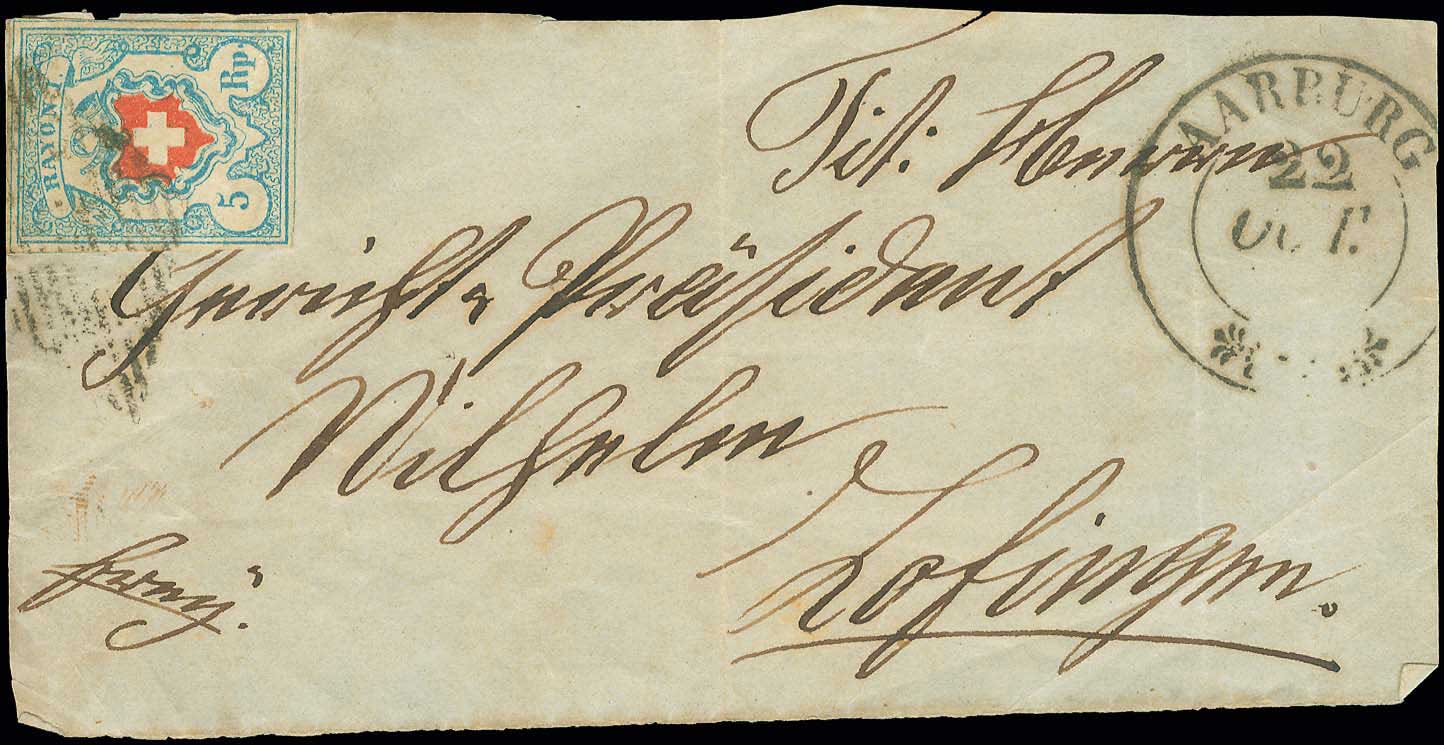 RAYON I.
5 Rp.
AARBURG
22
OCT.
Tit: Herrn
Gerichts Präsident
Wilhelm
Zofingen.
frey.